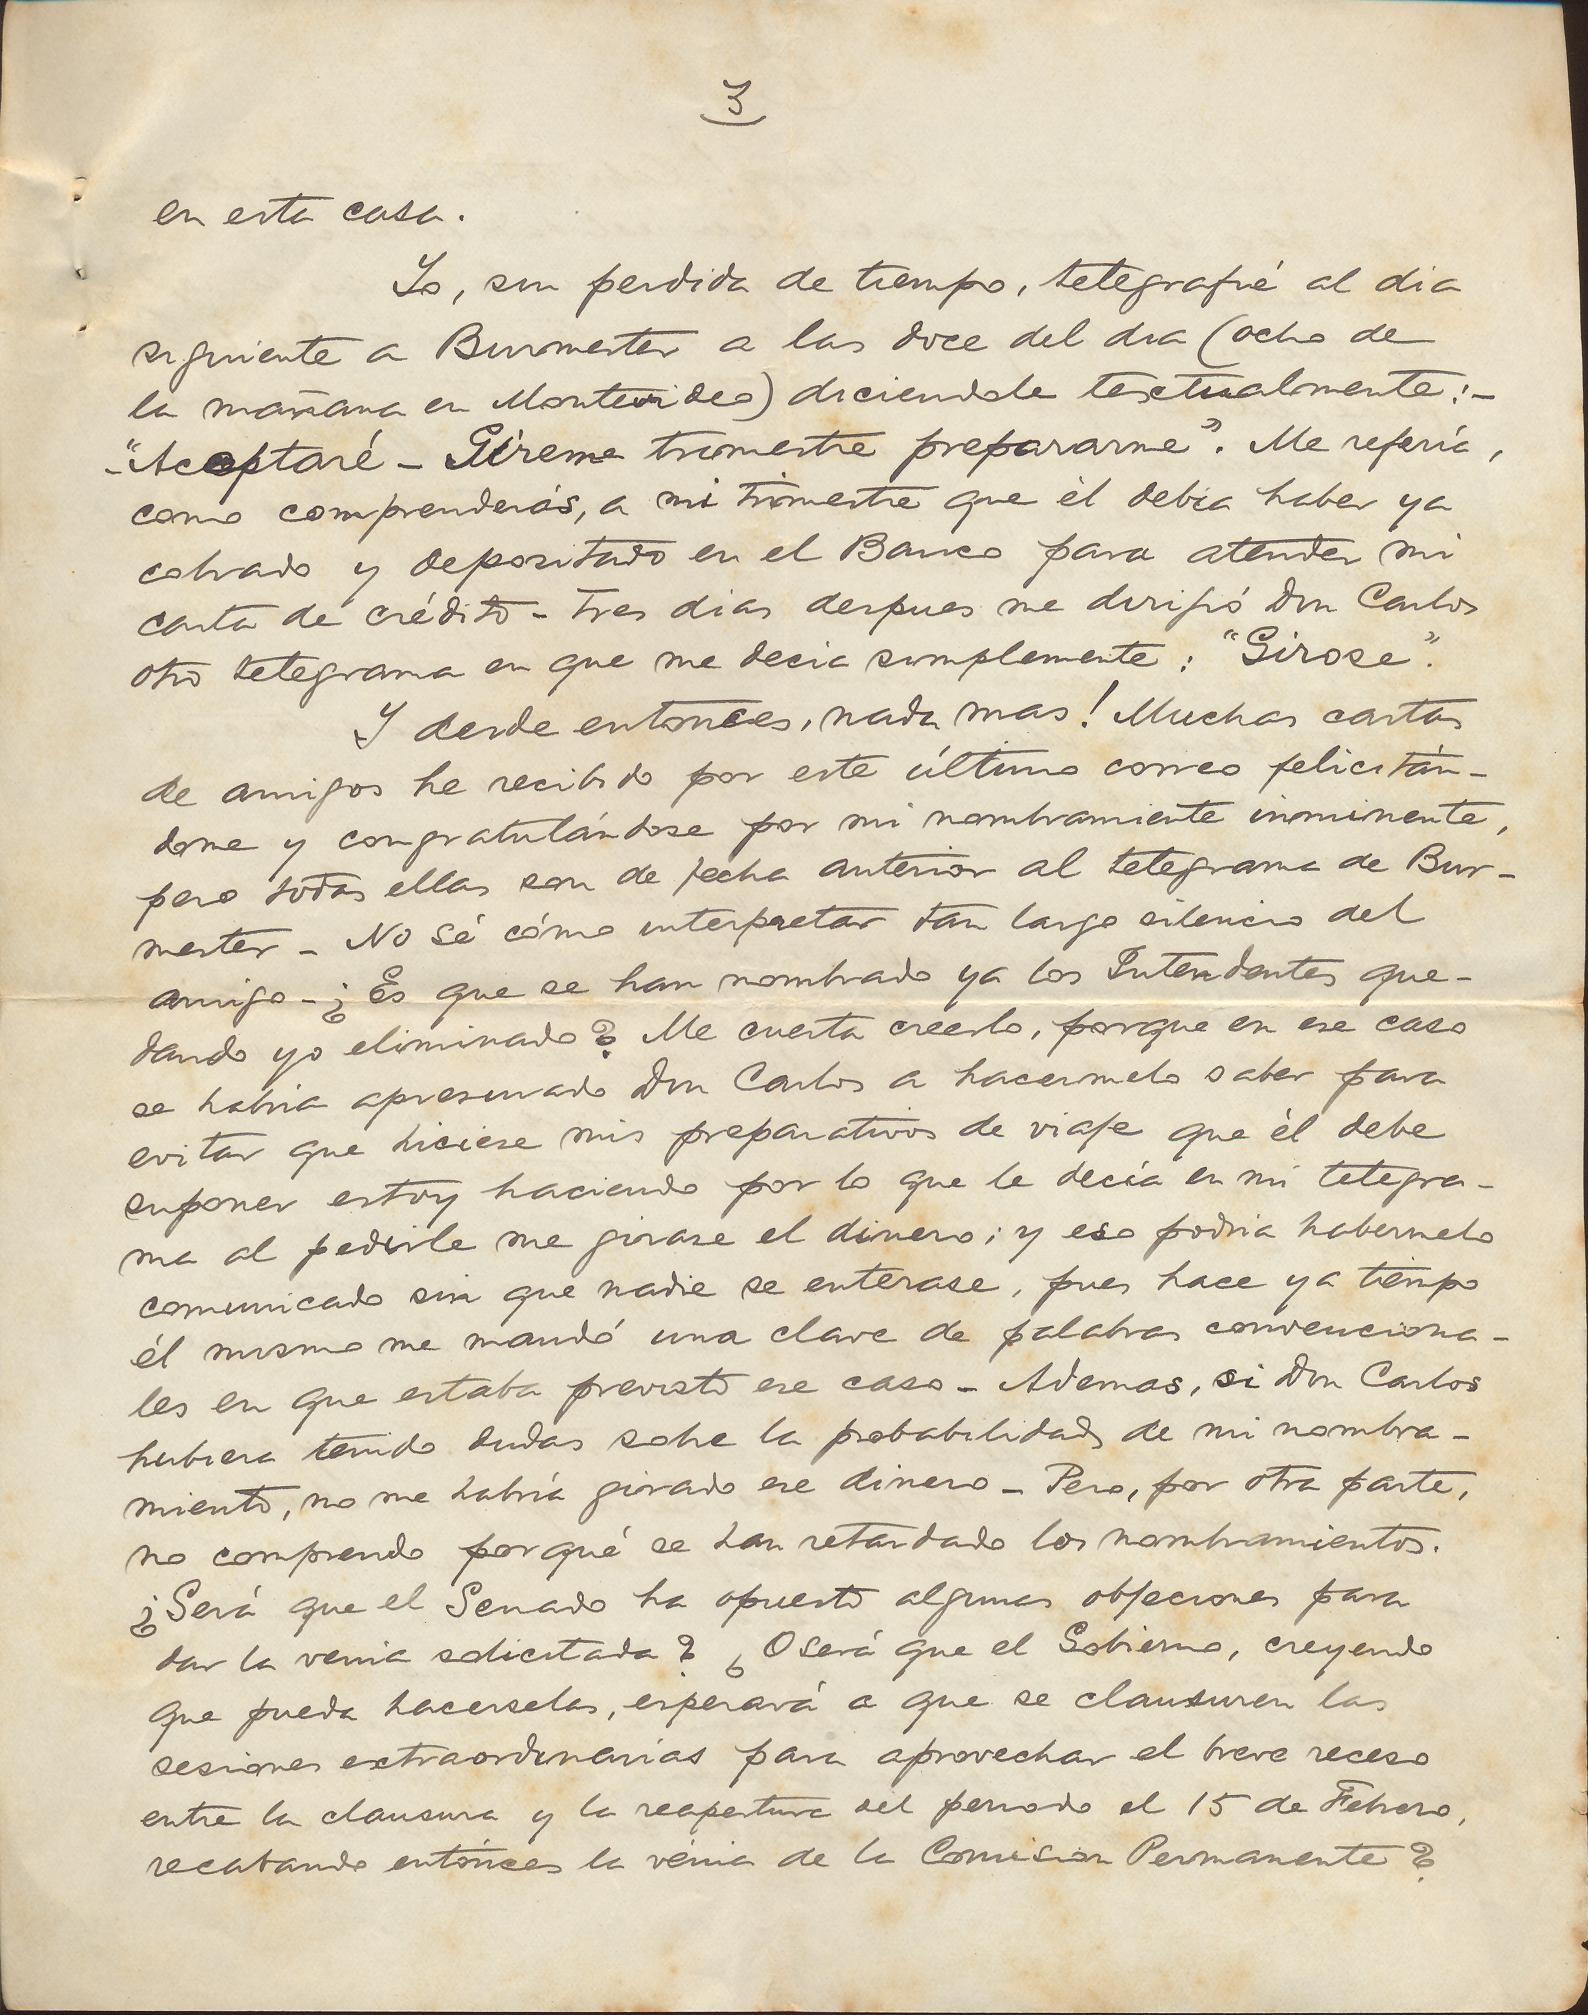 3
en esta casa.
Yo, sin perdida de tiempo, telegrafié al dia
siguiente a Burmester a las doce del dia (ocho de
la mañana en Montevideo) diciendole textualmente:-
-"Aceptaré - Gíreme trimestre prepararme". Me refería,
como comprenderás, a mi trimestre que él debía haber ya
cobrado y depositado en el Banco para atender mi
carta de crédito - Tres dias despues me dirigió Don Carlos
otro telegrama en que me decia simplemente: "Girose".
Y desde entonces, nada mas! Muchas cartas
de amigos he recibido por este último correo felicitán-
dome y congratulándose por mi nombramiento inminente,
pero todas ellas son de fecha anterior al telegrama de Bur-
mester - No sé cómo interpretar tan largo silencio del
amigo - ¿Es que se han nombrado ya los Intendentes que-
dando yo eliminado? Me cuesta creerlo, porque en ese caso
se habria apresurado Don Carlos a hacermelo saber para
evitar que hiciese mis preparativos de viaje que él debe
suponer estoy haciendo por lo que le decía en mi telegra-
ma al pedirle me girase el dinero; y eso podria habermelo
comunicado sin que nadie se enterase, pues hace ya tiempo
él mismo me mandó una clave de palabras convenciona-
les en que estaba previsto ese caso - Ademas, si Don Carlos
hubiera tenido dudas sobre la probabilidad de mi nombra-
miento, no me habría girado ese dinero - Pero, por otra parte,
no comprendo porqué se han retardado los nombramientos.
¿Será que el Senado ha opuesto algunas objeciones para
dar la venia solicitada? ¿O será que el Gobierno, creyendo
que pueda hacerselas, esperará a que se clausuren las
sesiones extraordinarias para aprovechar el breve receso
entre la clausura y la reapertura del periodo el 15 de Febrero,
recabando entónces la vénia de la Comision Permanente?